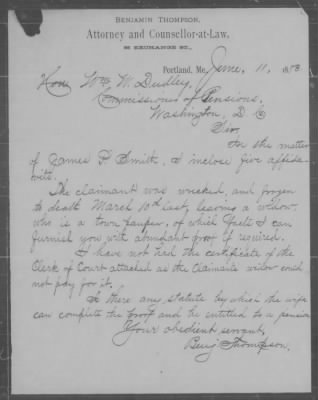 BENJAMIN THOMPSON,
Attorney and Counsellor-at-Law,
EXCHANGE ST.,
Portland, Me., June, 11, 1883.
Hon. Wm W. Dudley,
Commissioner of Pensions,
Washington, D. C
Sir.
In the matter
of James P. Smith, I inclose five affida-
vits.
The claimant was wrecked, and frozen
to death March 10th last, leaving a widow
who is a town pauper, of which facts I can
furnish you with abundant proof if required.
I have not had the certificate of the
Clerk of Court attached as the Claimants widow could
not pay for it.
Is there any statute by which the wife
can complete the proof and be entitled to a pension
Your obedient servant,
Benj Thompson.